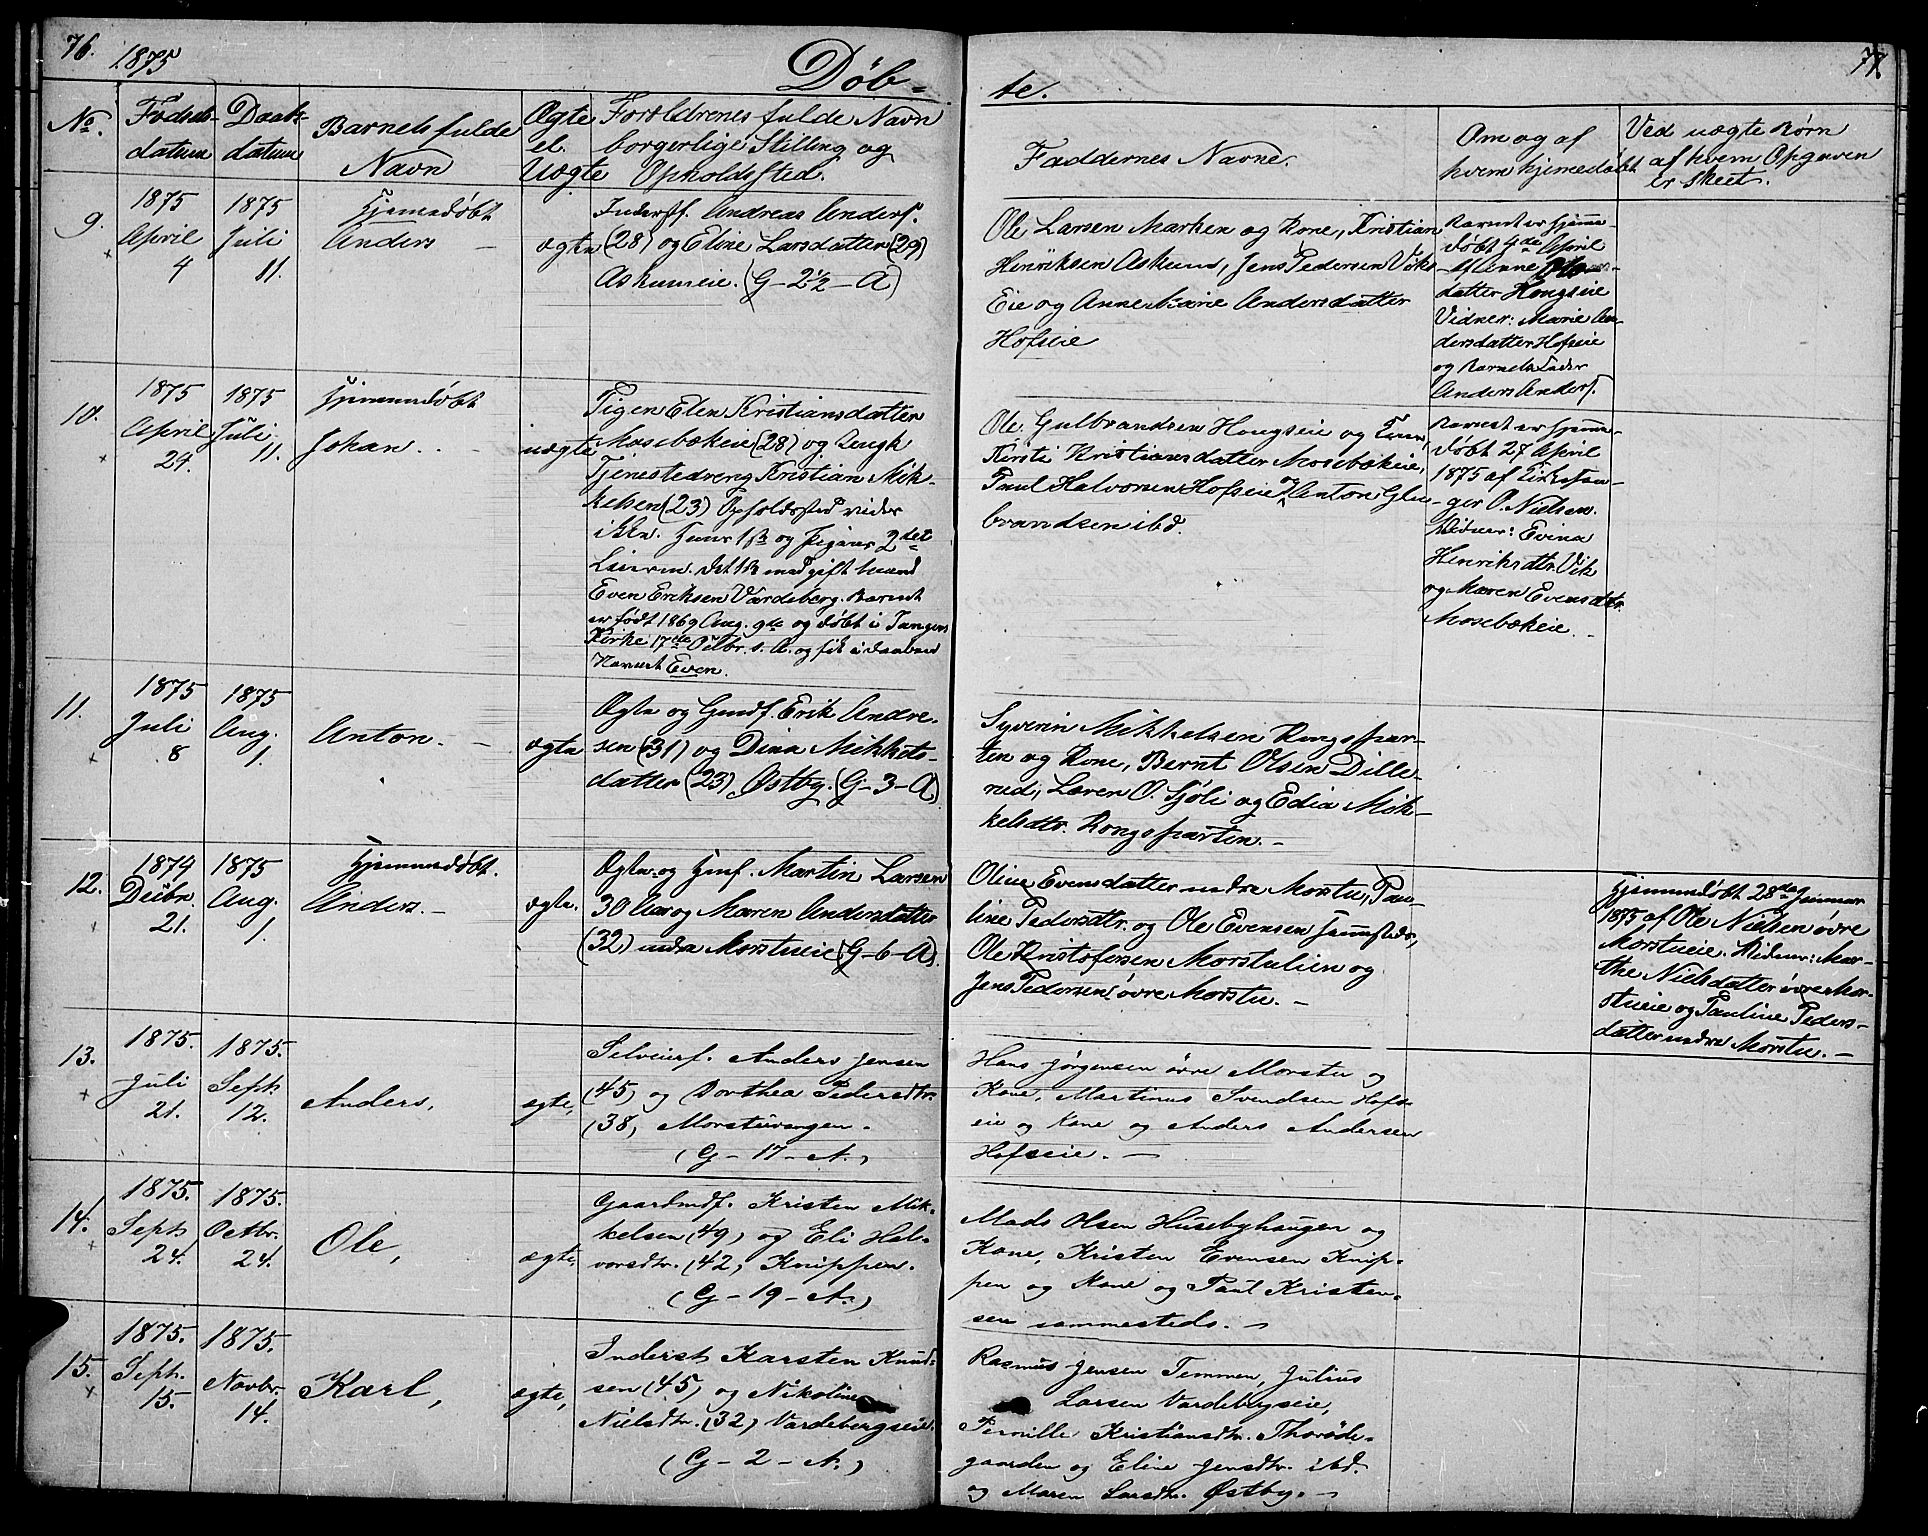 76.
1875
Døb-
te.
77.
No.
Fødsels-
datum
Daab-
datum
Barnets fulde
Navn
Ægte
el.
Uægte
Forældrenes fulde Navn
borgerlige Stilling og
Opholdssted.
Faddernes Navne.
Om og af
hvem hjemedøbt
Ved uægte Børn
af hvem Opgaven
er skeet.
9.
1875
April
4
1875
Juli
11.
Hjemedøbt
Anders
ægte
Inderstf. Andreas Anders.
(28) og Eline Larsdatter (29)
Askumeie. (G-2½-A)
Ole Larsen Marken og Kone, Kristian
Henriksen Askum, Jens Pedersen Viks
Eie og Anne Marie Andersdatter
Hofseie
Barnet er hjemme-
døbt 4de April
datter Hongseie
Vidner: Marie An-
dersdatter Hofseie
og Barnets Fader
Anders Anders.
10.
1875
April
24.
1875
Juli
11.
Hjemmedøbt
Johan.
uægte
Pigen Elen Kristiansdatter
Mosebækeie (28) og Ungk
Tjenestedreng Kristian Mik-
kelsen (23) Opholdssted vides
ikke. Hans 1ste og Pigens 2det
Leierm. Det 1ste med gift Mand
Even Eriksen Vardeberg. Barnet
er født 1869 Aug. 9de og døbt i Tangens
Kirke 17de Octbr. s. A. og fik i Daaben
Navnet Even.
Ole Gulbrandsen Hongseie og
Kirsti Kristiansdatter Mosebækeie,
Paul Halvorsen Hofseie og Anton Gul-
brandsen ibd.
Barnet er hjemme-
døbt 27 April
1875 af Kirkesan-
ger O. Nielsen.
Vidner: Evina
Henriksdtr. Vik
og Maren Evensdtr.
Mosebækeie.
11.
1875
Juli
8
1875
Aug.
1.
Anton.
ægte
Ægte og Gmdf. Erik Andre-
sen (31) og Dina Mikkels-
datter (23) Østby. (G-3-A)
Syverin Mikkelsen Rongspar-
ten og Kone, Bernt Olsen Dille-
rud, Loren O. Sjøli og Edia Mik-
kelsdtr. Rongsparten.
12.
1874
Decbr.
21.
1875
Aug.
1.
Hjemmedøbt.
Anders.
ægte.
Ægte og Hmf. Martin Larsen
30 Aar og Maren Andersdatter
(32) nedre Morstueie (G-6-A).
Oline Evensdatter nedre Morstu, Pau-
line Pedersdtr. og Ole Evensen sammesteds,
Ole Kristofersen Morstulien og
Jens Pedersen øvre Morstu.
Hjemmedøbt 28de Januar
1875 af Ole Nielsen øvre
Morstueie. Vidner: Mar-
the Nielsdatter øvre Mor-
stueie og Pauline Peders-
datter nedre Morstu.
13.
1875.
Juli
21.
1875.
Septr.
12.
Anders,
ægte,
Selveierf. Anders Jensen
(45) og Dorthea Pedersdtr.
(38) Morstuvangen.
(G-17-A.)
Hans Jørgensen øvre Morstu og
Kone, Martinus Svendsen Hofs-
eie og Kone og Anders Andersen
Hofseie.
14.
1875.
Septr
24.
1875.
Octbr.
24.
Ole,
ægte,
Gaardmdf. Kristen Mik-
kelsen (49) og Eli Hal-
vorsdtr. (42) Knippen.
(G-19-A.)
Mads Olsen Husebyhaugen og
Kone, Kristen Evensen Knip-
pen og Kone og Paul Kristen-
sen sammesteds.
15.
1875.
Septr.
15.
1875.
Novbr.
14.
Karl,
ægte,
Inderst Karsten Knud-
sen (45) og Nikoline
Nielsdtr. (32) Vardebergseie.
(G-2-A.)
Rasmus Jensen Temmen, Julius
Larsen Vardebergseie,
Pernille Kristiansdtr. Thorøde-
gaarden og Eline Jensdtr. ibd.
og Maren Larsdtr. Østby.